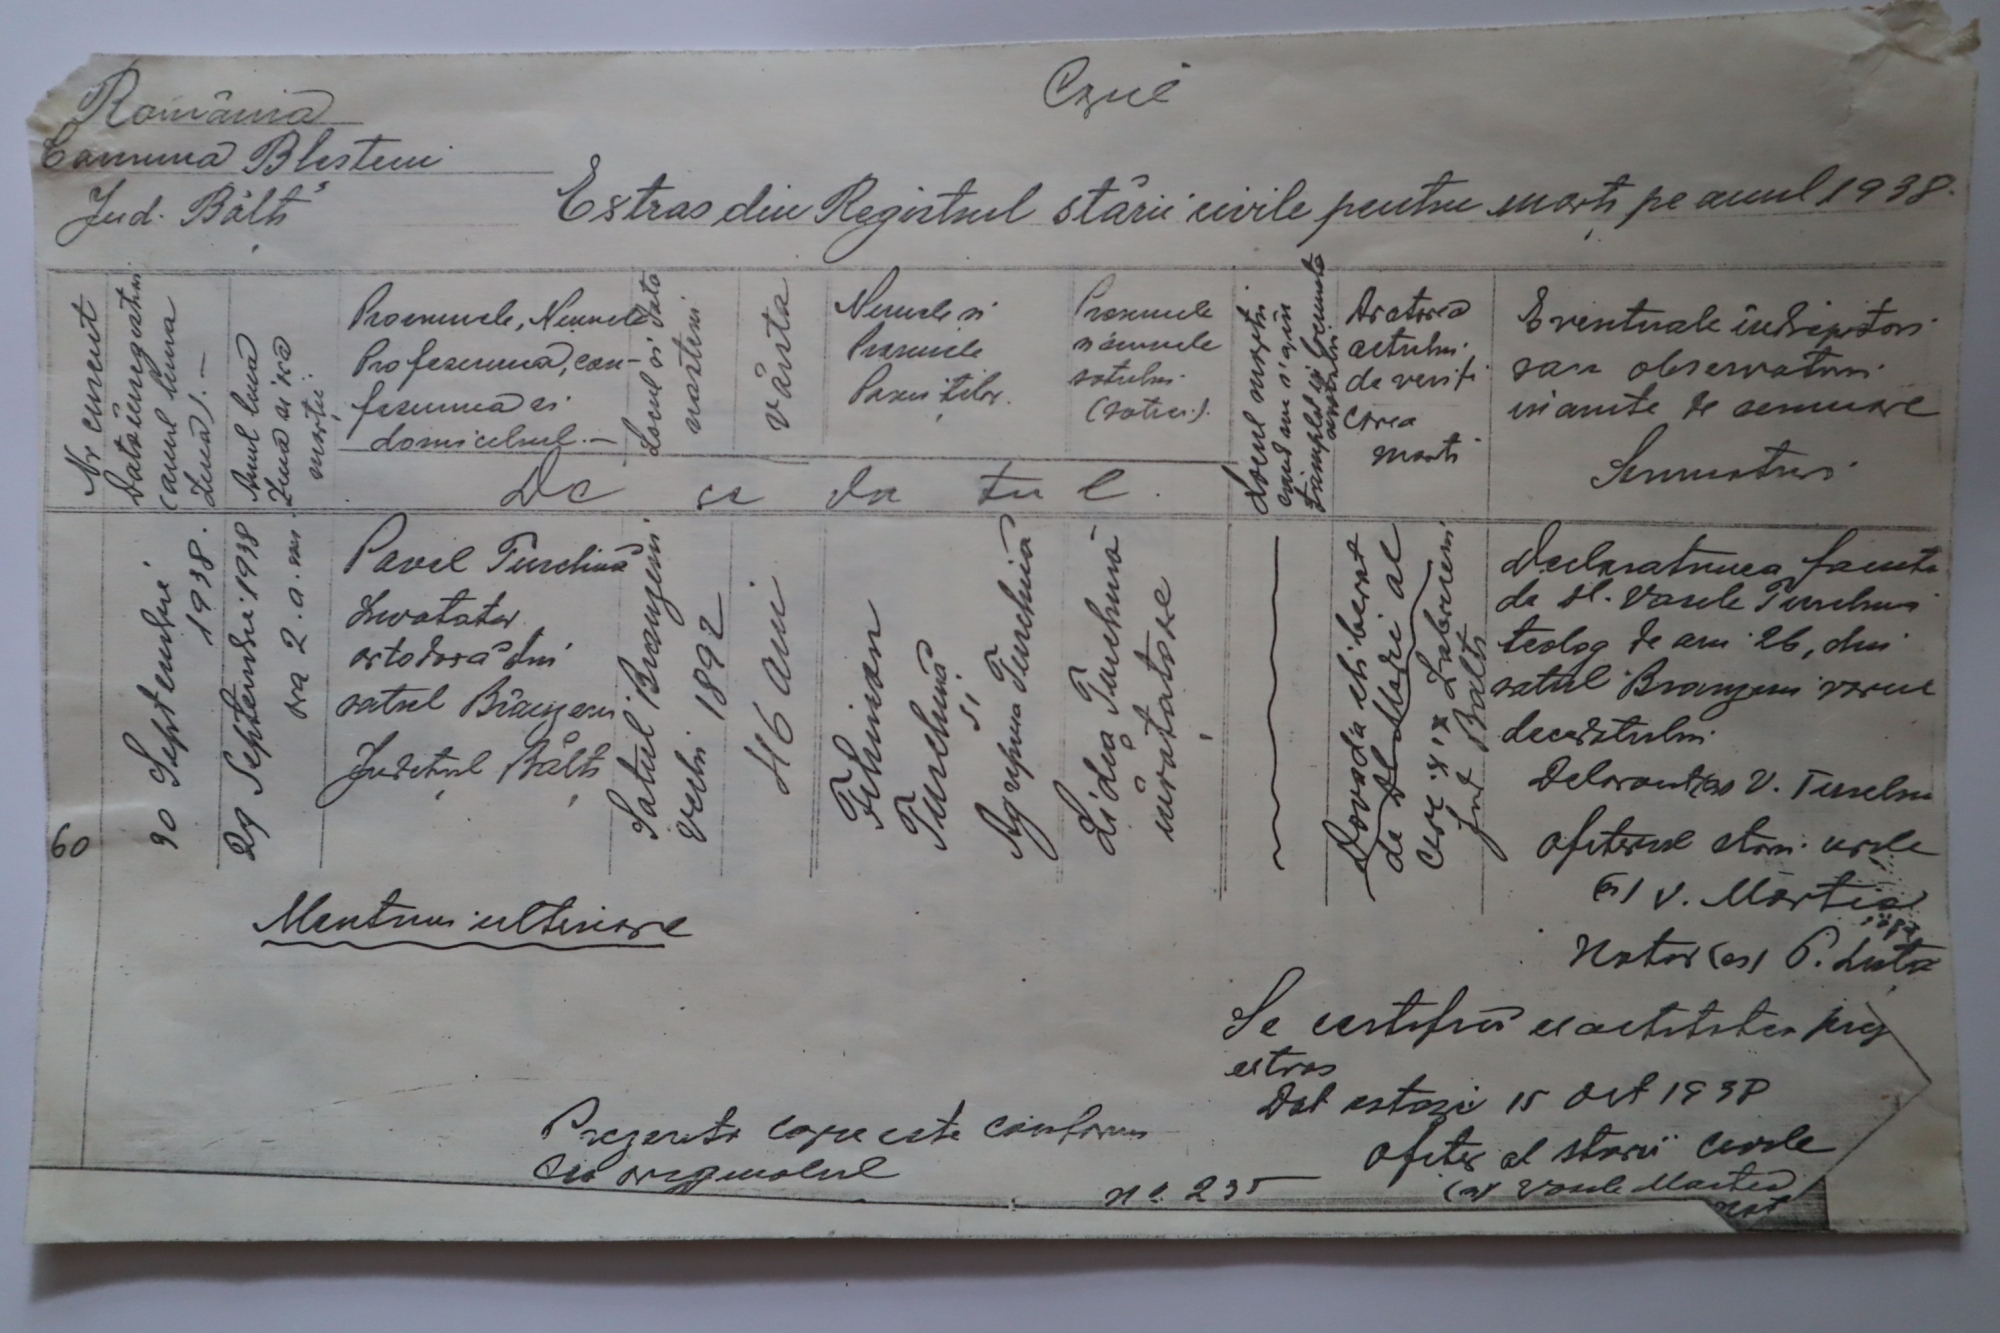 România
Copie
Comuna Blesteni
Jud. Bălți
Estras din Registrul stării civile pentru morți pe anul 1938.
Nr curent
Data înregistrării
(anul luna
ziua). —
Anul luna
Ziua și ora
morții.
Pronumele, Numele
Profesiunea, con-
fesiunea și
domiciliul. —
Locul și data
nașterii
vârsta
Numele și
Pronumele
Părinților.
Pronumele
și numele
soțului
(soției).
Locul morții
Aratarea
actului
de verifi
carea
morții
Eventuale îndreptări
sau observațiuni
înainte de semnare
Semnături
De ce da tu l.
60
30 Septembrie
1938.
29 Septembrie 1938
ora 2. a.m.
Pavel Turchină
Învățător
ortodoxă din
satul Brânzeni
Județul Bălți
Satul Branzeni
1892
46 ani
Filimon
Turchină
și
Agripina Turchină
Lidia Turchină
învățătoare
Dovada eliberată
de
Jud Bălți
Declarațiunea făcută
de dl. Vasile Turchină
teolog de ani 26, din
satul Branzeni
decedatului
Declarant (ss) V. Turchină
ofițerul stării civile
(ss) V. Marțea
Notar (ss) P. Luta
Mențiuni ulterioare
Se certifică exactitatea prez
estras
Dat astazi 15 Oct 1938
ofițer al stării civile
(ss) Vasile Marțea
Prezenta copie este conformă
cu originalul
No. 235